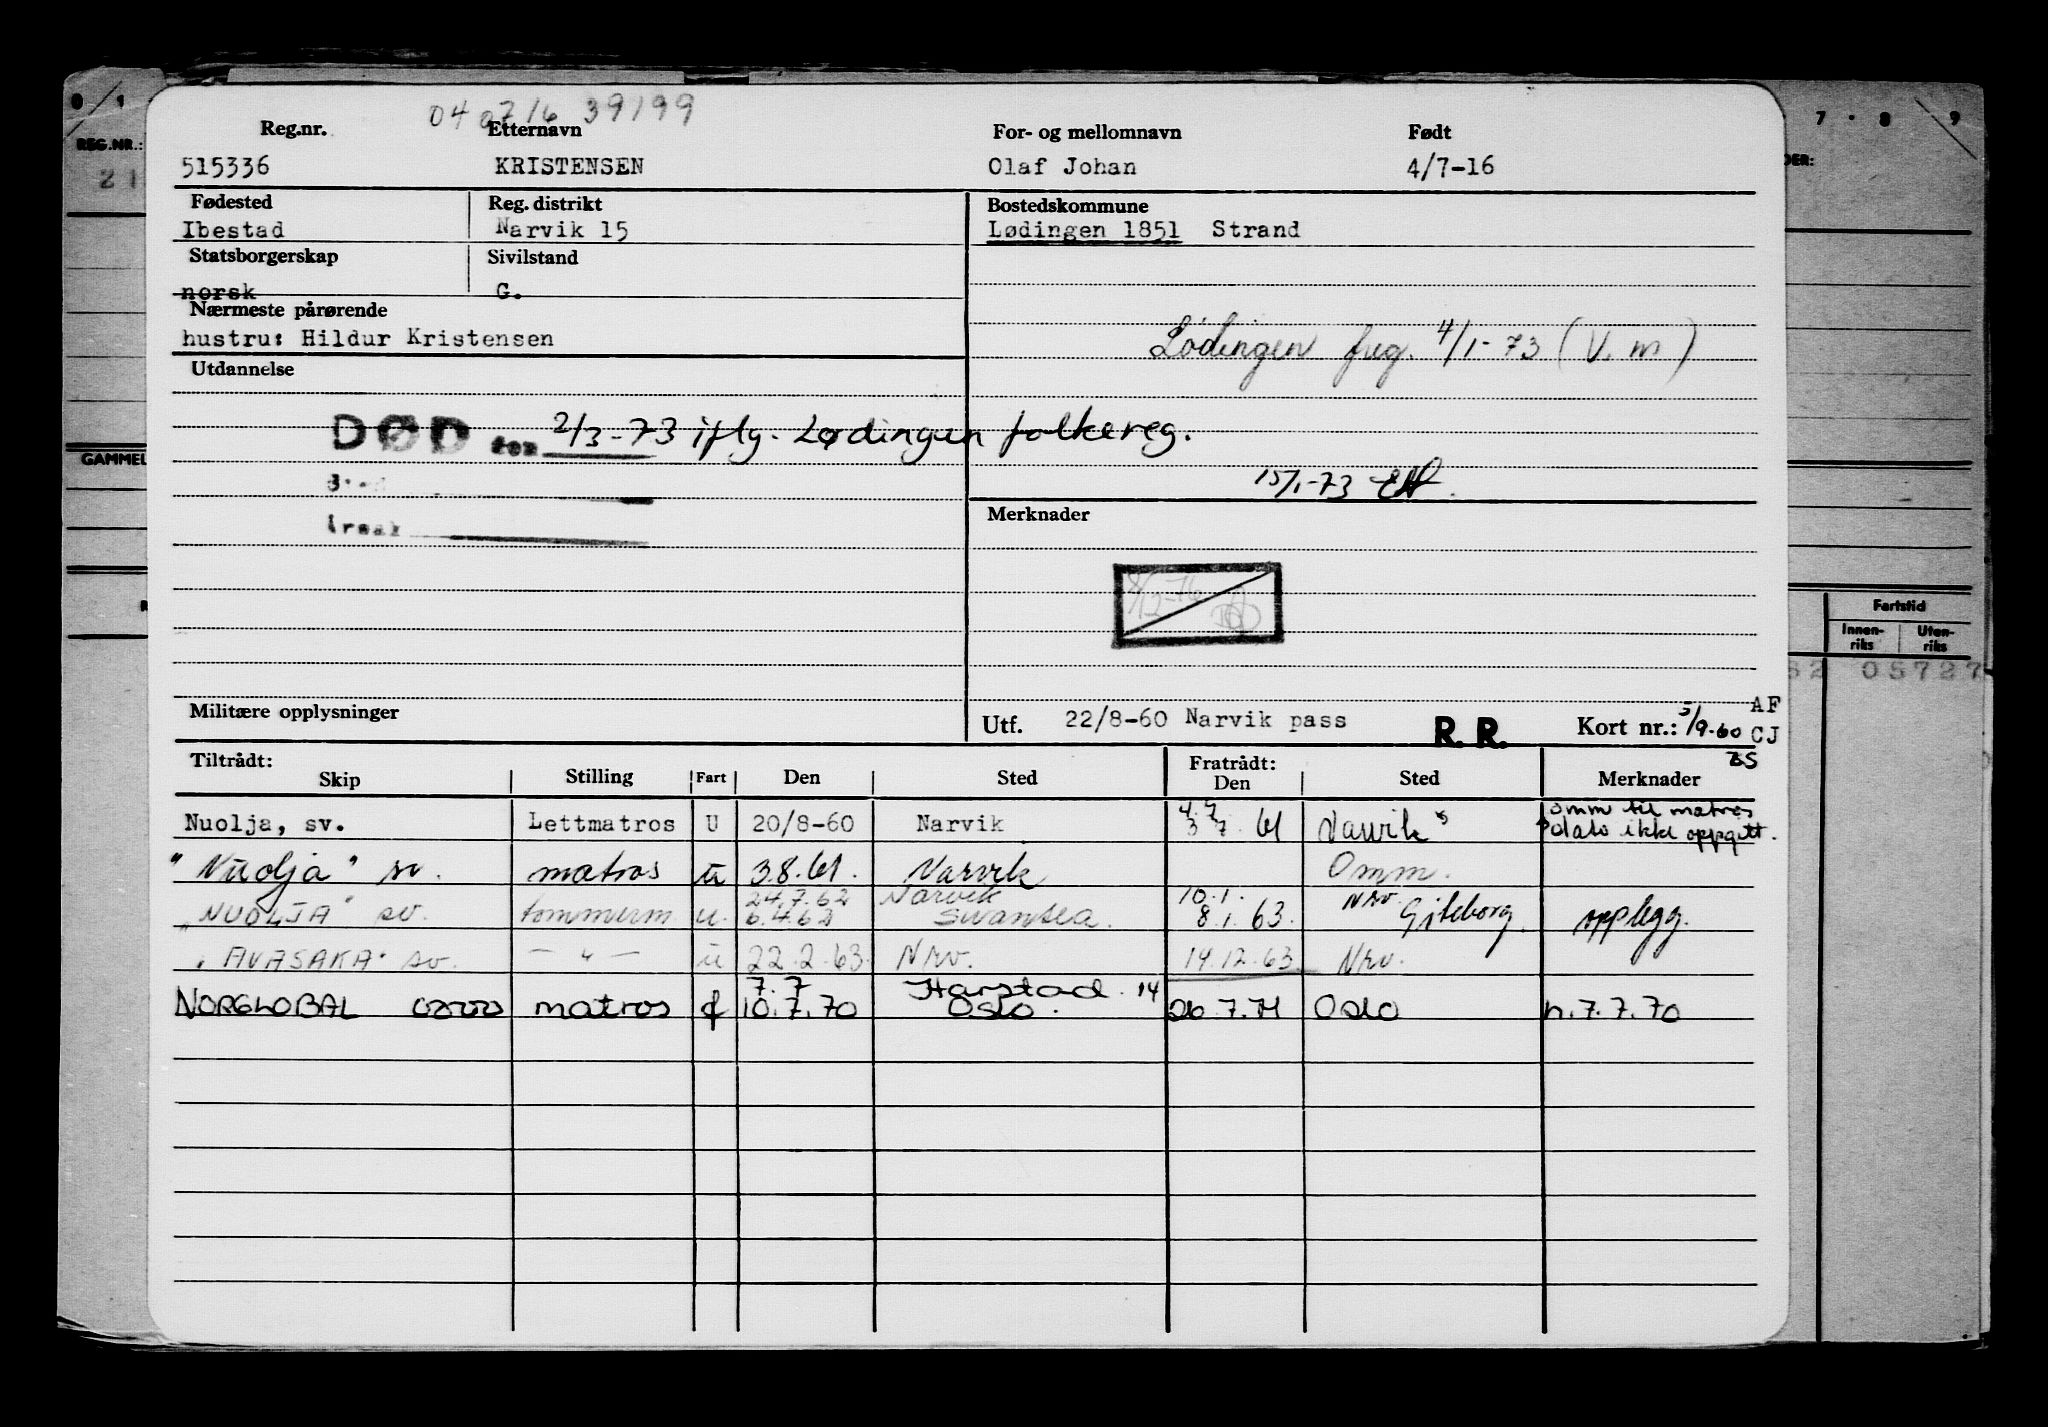 0 1
7 · 8 9
04 07 16 39199
Reg.nr. Etternavn For- og mellomnavn Født
REG.NR.:
515336 KRISTENSEN Olaf Johan 4/7-16
21
Fødested Reg. distrikt Bostedskommune
Ibestad Narvik 15 Lødingen 1851 Strand
Statsborgerskap Sivilstand
norsk G.
Nærmeste pårørende
hustru: Hildur Kristensen
Lødingen freg. 4/1-73 (V. m)
Utdannelse
DØD den 2/3-73 iflg. Lødingen folkereg.
GAMMEL
15/1-73
Merknader
8/12-76
Fartstid
Innen-riks Uten-riks
62 05727
Militære opplysninger
Utf. 22/8-60 Narvik pass R. R. Kort nr.: 5/9-60 AF
CJ
BS
Tiltrådt: Fratrådt:
Skip Stilling Fart Den Sted Den Sted Merknader
Nuolja, sv. Lettmatros U 20/8-60 Narvik 3 7. 61 Narvik omm til matros
dato ikke oppgitt.
"Nuolja" sv. matros u 3.8.61. Narvik Omm.
24.7.62 Narvik 10.1. Nrv
"NUOLJA" sv. tømmerm. u. 6.4.62 Swansea. 8.1.63. Gøteborg. opplegg.
"AVASAKA" sv. — " — u 22.2.63. Nrv. 14.12.63 Nrv.
7.7 Harstad. 14
NORGLOBAL matros f 10.7.70 Oslo. 26.7.71 Oslo h.7.7.70